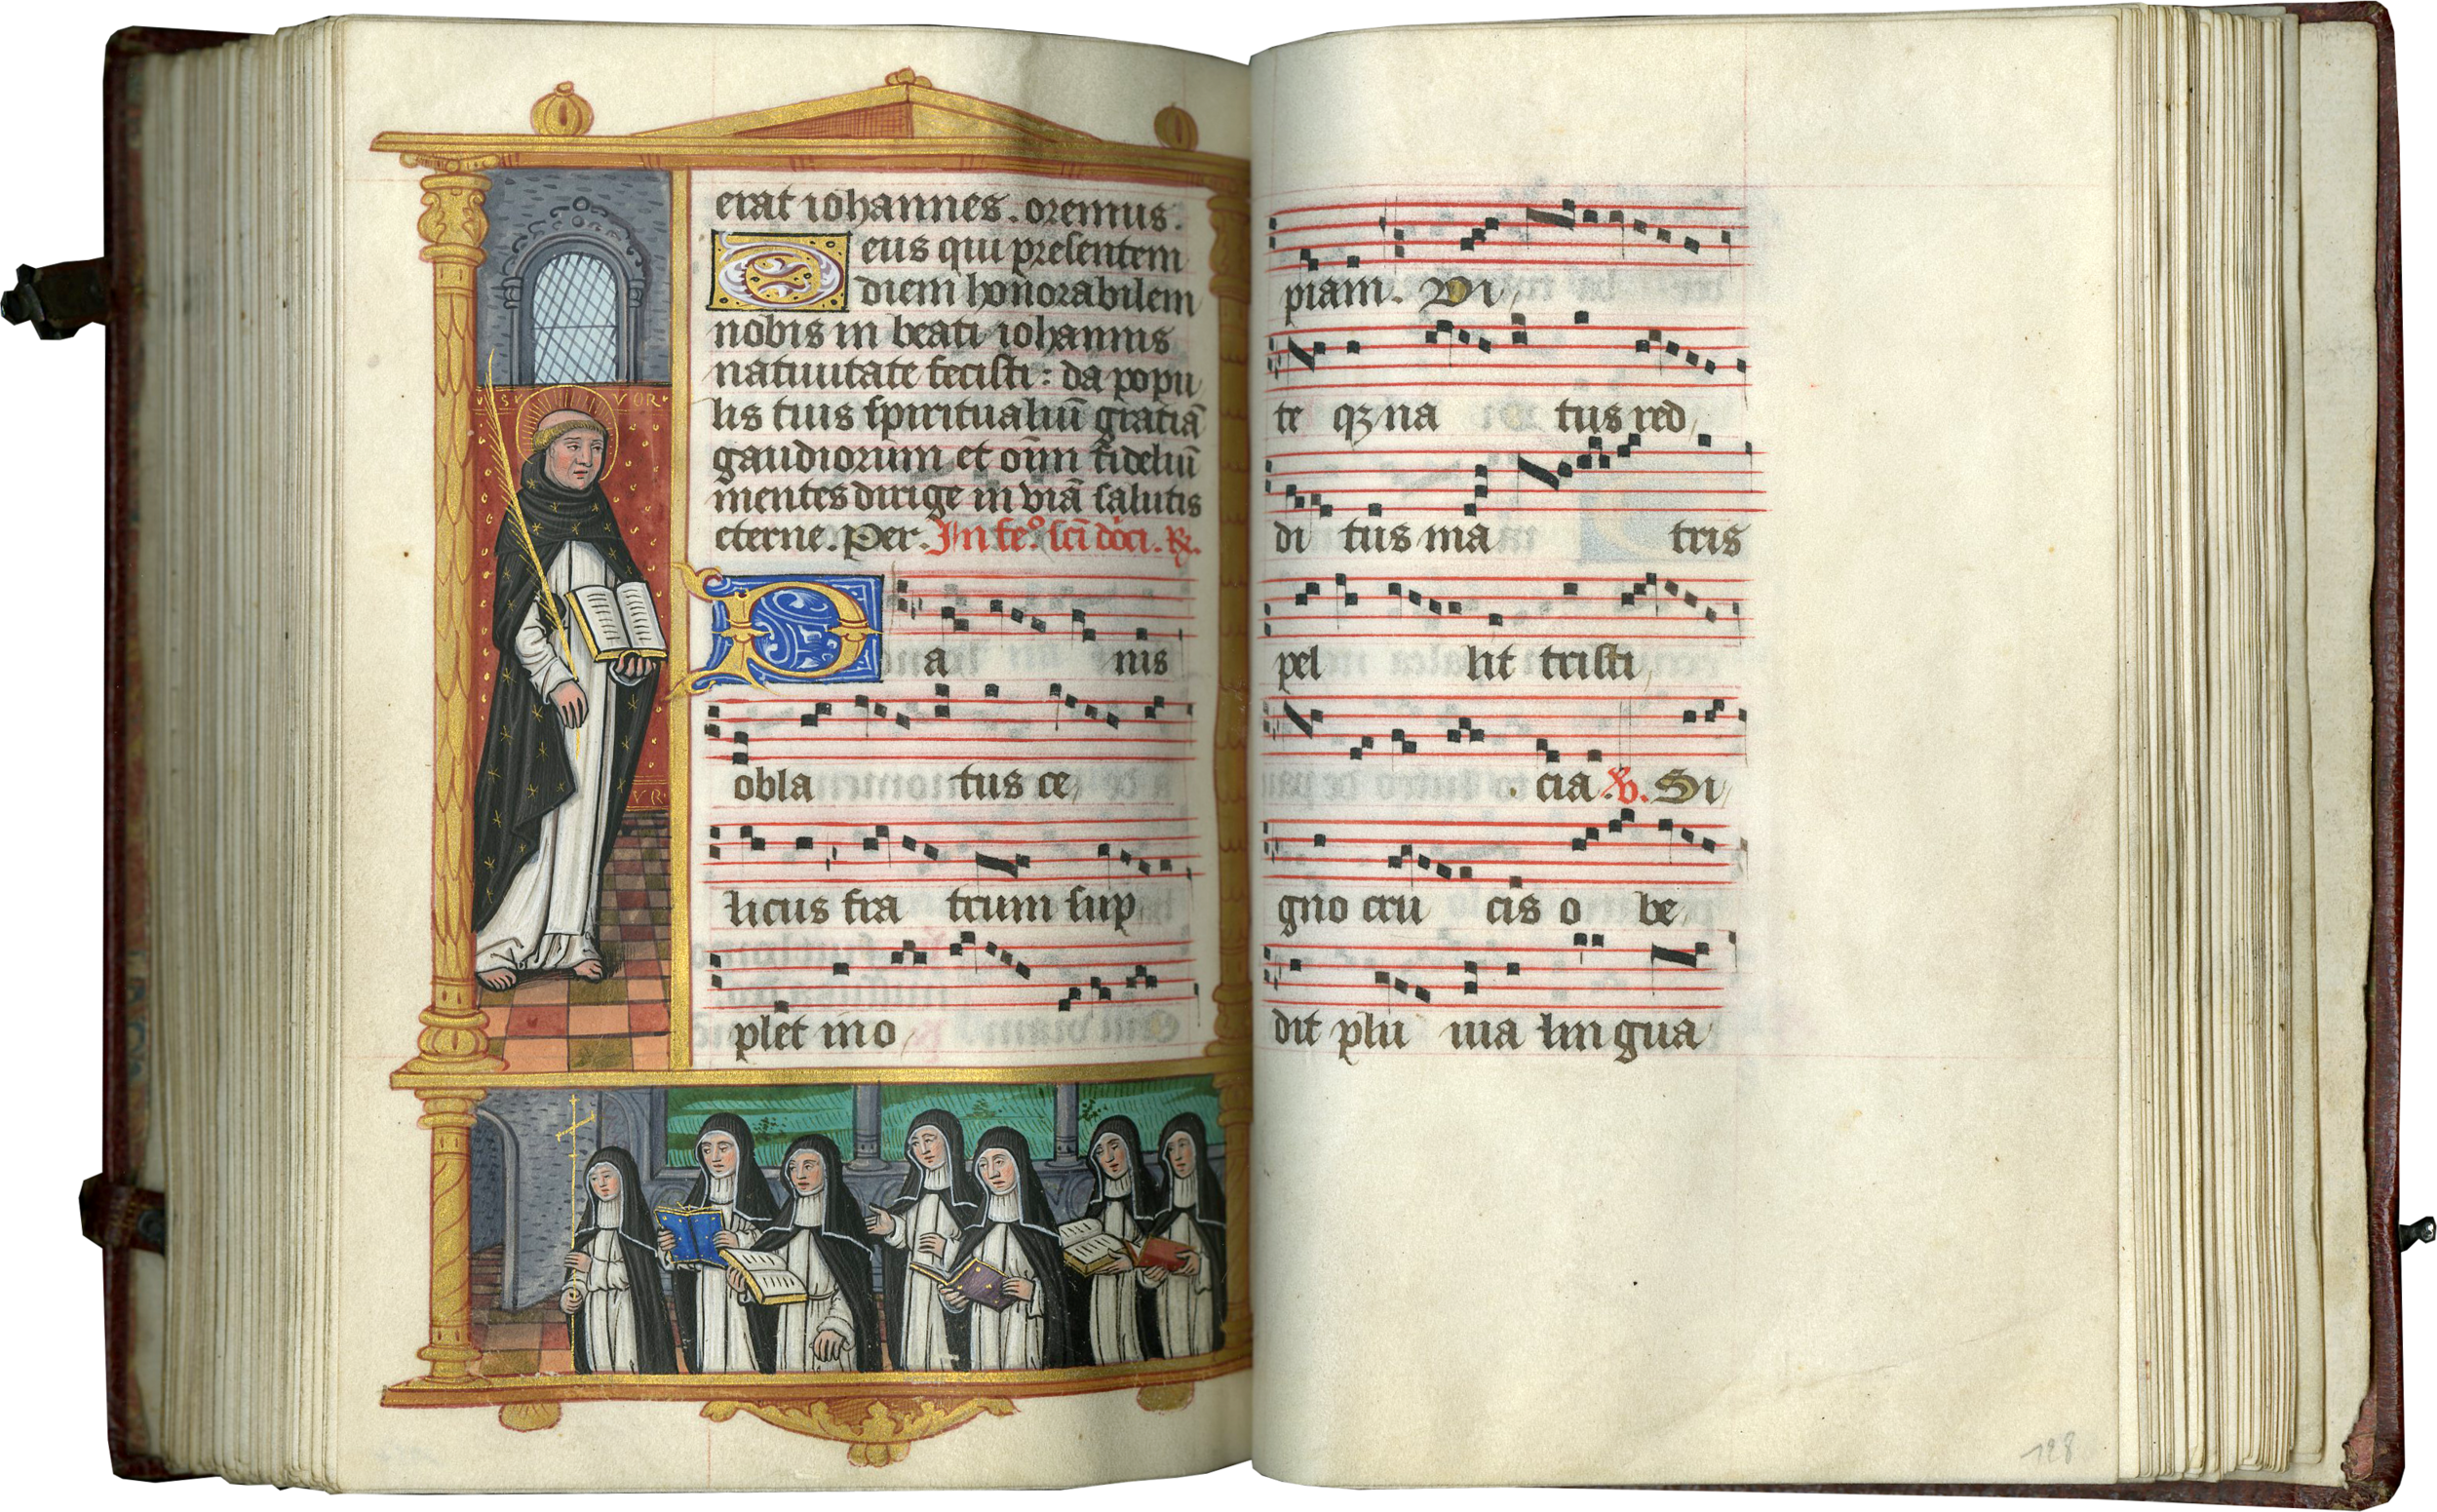 erat iohannes. oremus.
Deus qui presentem
diem honorabilem
nobis in beati iohannis
natiuitate fecisti: da popu
lis tuis spiritualiū gratiā
gaudiorum et oīm fideliū
mentes dirige in viā salutis
eterne. Per. In fe.º scī dōci. ℟.
Pa nis
obla tus ce
licus fra trum sup
plet ino
piam. Vi
te qꝫ na tus red
di tus ma tris
pel lit tristi
cia ℣. Si
gno cru cis o be
dit plu uia lin gua
128